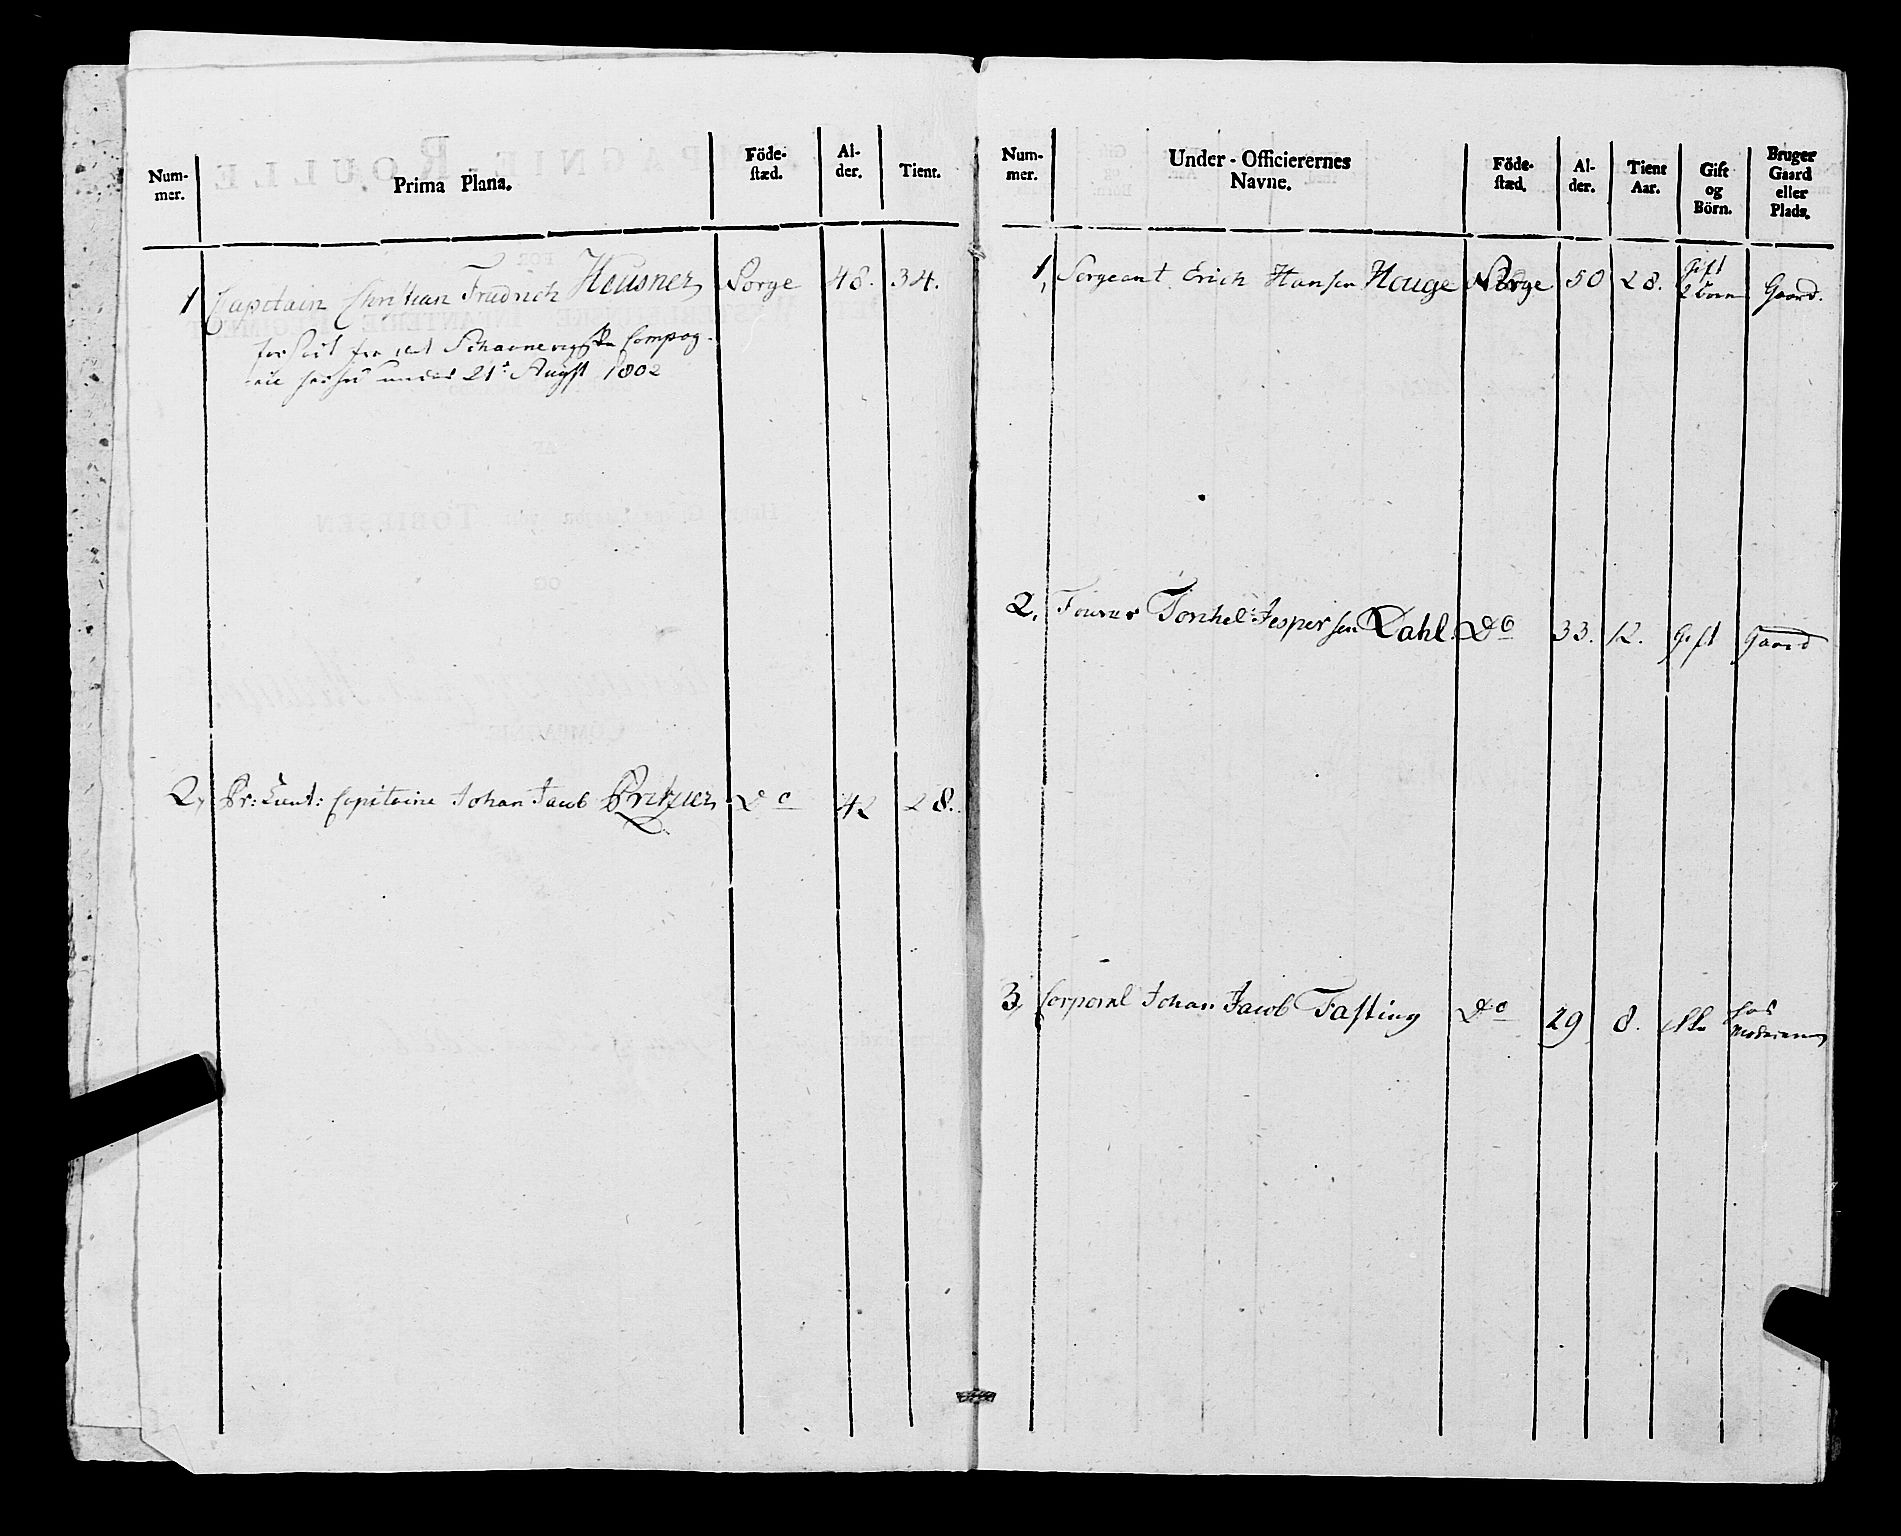 Num-
mer.
Prima Plana.
Föde-
stæd.
Al-
der.
Tient.
1 Capitain Christian Fredrich Heusner Norge 48. 34.
forsat fra det Compag-
nie under 21: Augst 1802
2, Pr: Lieut: Capitaine Johan Jacob Pritzier Do 42 28.
Num-
mer.
Under-Officierernes
Navne.
Föde-
stæd.
Al-
der.
Tient
Aar.
Gift
og
Börn.
Bruger
Gaard
eller
Plads.
1, Sergeant Erich Hansen Houge Norge 50 28. Gift
2 Börn Gaard.
2, Fourer Torchel Jespersen Dahl Do 33. 12. Gift Gaard
3, Corporal Johan Jacob Fasting Do 29 8. ikke hos
Moderen